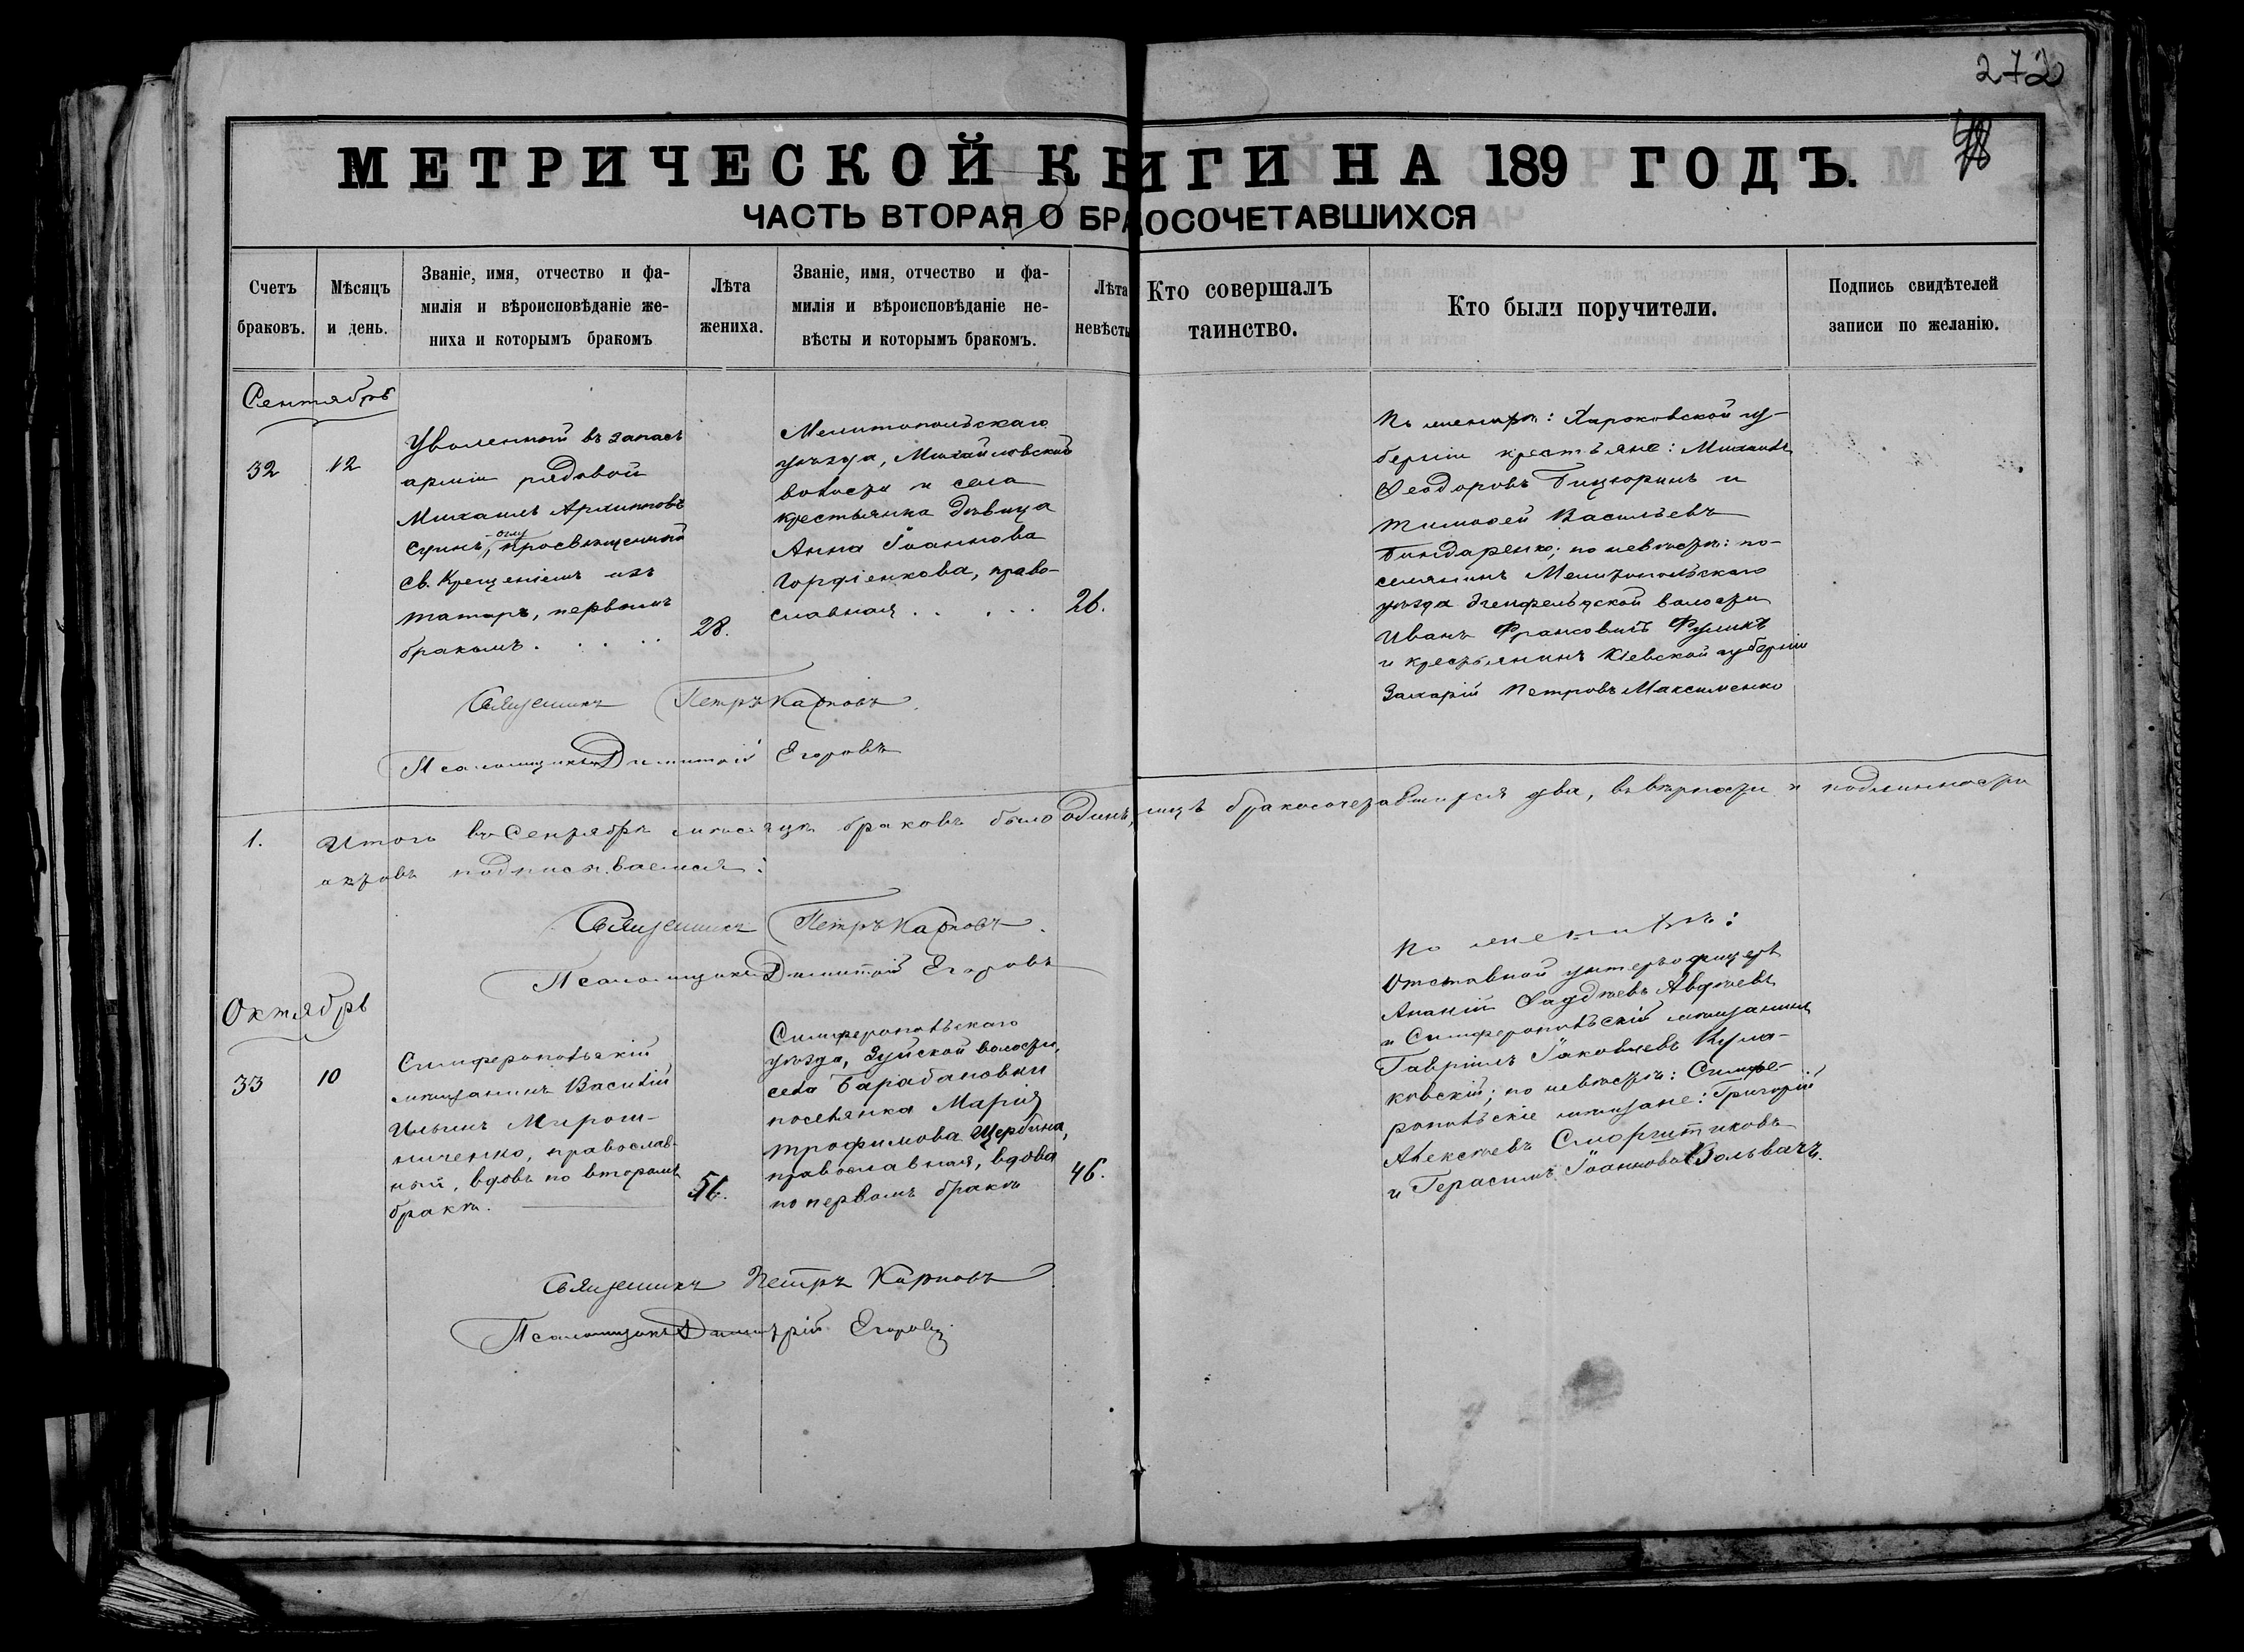 272
МЕТРИЧЕСКОЙ КНИГИ НА 189 ГОДЪ.
ЧАСТЬ ВТОРАЯ О БРАОСОЧЕТАВШИХСЯ
Счетъ браковъ.
Мѣсяцъ и день.
Званіе, имя, отчество и фа-
милія и вѣроисповѣданіе же-
ниха и которымъ бракомъ
Лѣта жениха.
Званіе, имя, отчество и фа-
милія и вѣроисповѣданіе не-
вѣсты и которымъ бракомъ.
Лѣта невѣсты
Кто совершалъ таинство.
Кто были поручители.
Подпись свидѣтелей
записи по желанію.
Сентябрь
32
12
Уволенный въ запасъ
арміи рядовой
Михаилъ Архиповъ
просвѣщенный
св. Крещеніемъ изъ
татаръ, первымъ
бракомъ.
28.
Мелитопольскаго
уѣзда, Михайловской
волости и села
крестьянка дѣвица
Анна Іоаннова
Гордіенкова, право-
славная
26.
По женихѣ: Харьковской гу-
берніи крестьяне: Михаилъ
Ѳеодоровъ Бицюринъ и
Тимоѳей Васильевъ
Бондаренко; по невѣстѣ: по-
селянинъ Мелитопольскаго
уѣзда волости
Иванъ
и крестьянинъ Кіевской губерніи
Захарій Петровъ Максименко
Священникъ Петръ Карповъ
Псаломщикъ Димитрій Егоровъ
1.
Итого въ Сентябрѣ мѣсяцѣ браковъ было одинъ, лицъ бракосочетавшихся два, въ вѣрности и подлинности
актовъ подписываемся:
Священникъ Петръ Карповъ
Псаломщикъ Димитрій Егоровъ
Октябрь
33
10
Симферопольскій
мѣщанинъ Василій
Ильинъ Мирош-
ниченко, православ-
ный, вдовъ по второмъ
бракѣ.
56.
Симферопольскаго
уѣзда, Зуйской волости,
села Барабановки
поселянка Марія
Трофимова Щербина,
православная, вдова
по первомъ бракѣ
46.
По женихѣ:
Отставной унтеръ-офицеръ
Ананій Ѳаддѣевъ Авдѣевъ
и Симферопольскій мѣщанинъ
Гавріилъ Іаковлевъ Кула-
ковскій; по невѣстѣ: Симфе-
ропольскіе мѣщане: Григорій
Алексѣевъ
и Герасимъ Іоанновъ Вольвачъ.
Священникъ Петръ Карповъ
Псаломщикъ Димитрій Егоровъ